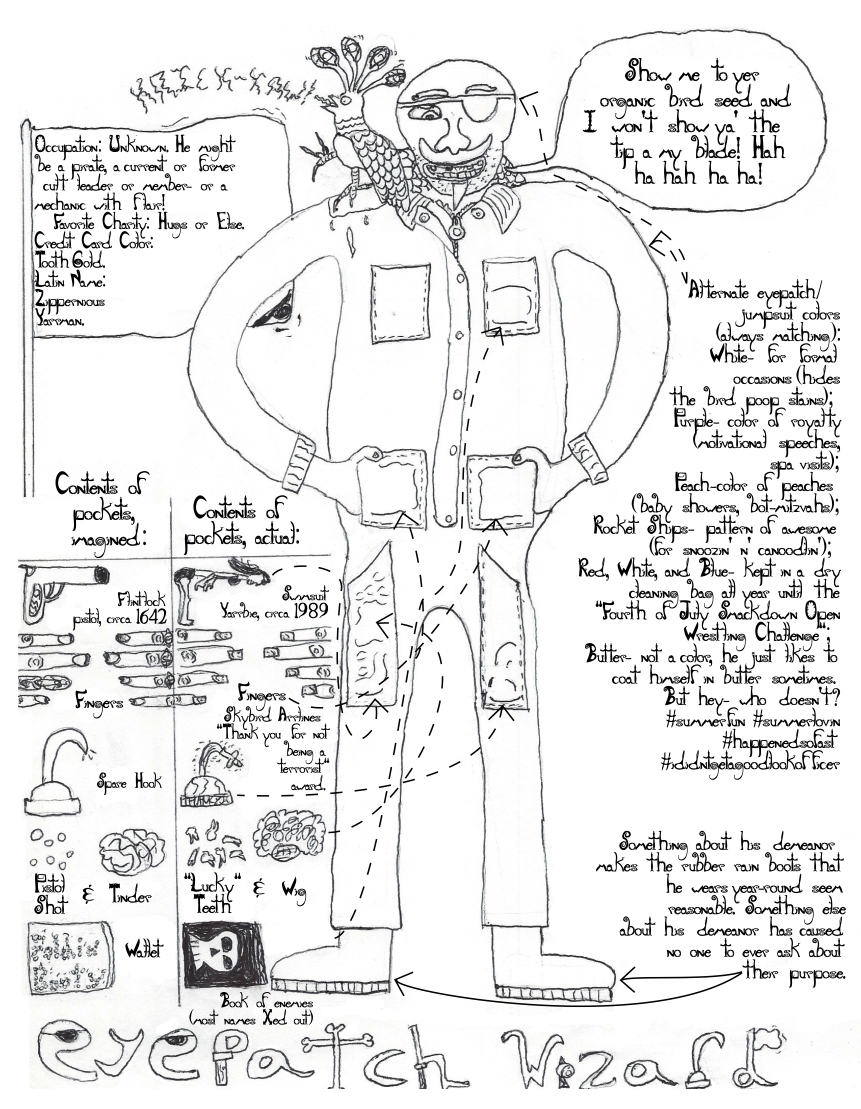 Show me to yer
organic bird seed and
I won't show ya' the
tip a my blade! Hah
ha hah ha ha!
Occupation: Unknown. He might
be a pirate, a current or former
cult leader or member- or a
mechanic with flair!
Favorite Charity: Hugs or Else.
Credit Card Color:
Tooth Gold.
Latin Name:
Zippernious
Yarrman.
Alternate eyepatch/
jumpsuit colors
(always matching):
White- for formal
occasions (hides
the bird poop stains);
Purple- color of royalty
(motivational speeches,
spa visits);
Peach-color of peaches
(baby showers, bot-mitzvahs);
Rocket Ships- pattern of awesome
(for snoozin' n' canoodlin');
Red, White, and Blue- kept in a dry
cleaning bag all year until the
"Fourth of July Smackdown Open
Wrestling Challenge";
Butter- not a color, he just likes to
coat himself in butter sometimes.
But hey- who doesn't?
#summerfun #summerlovin
#happenedsofast
#ididntgetagoodlookofficer
Contents of
pockets,
imagined:
Contents of
pockets, actual:
Flintlock
pistol, circa 1642
Swimsuit
Yarrbie, circa 1989
Fingers
Fingers
Skybird Airlines
"Thank you for not
being a
terrorist"
award.
Spare Hook
Pistol
Shot
&
Tinder
"Lucky"
Teeth
&
Wig
Wallet
Book of enemies
(most names Xed out)
Something about his demeanor
makes the rubber rain boots that
he wears year-round seem
reasonable. Something else
about his demeanor has caused
no one to ever ask about
their purpose.
eyepatch Wizard